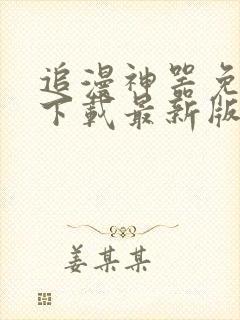 追漫神器免
下载最新版
姜某某